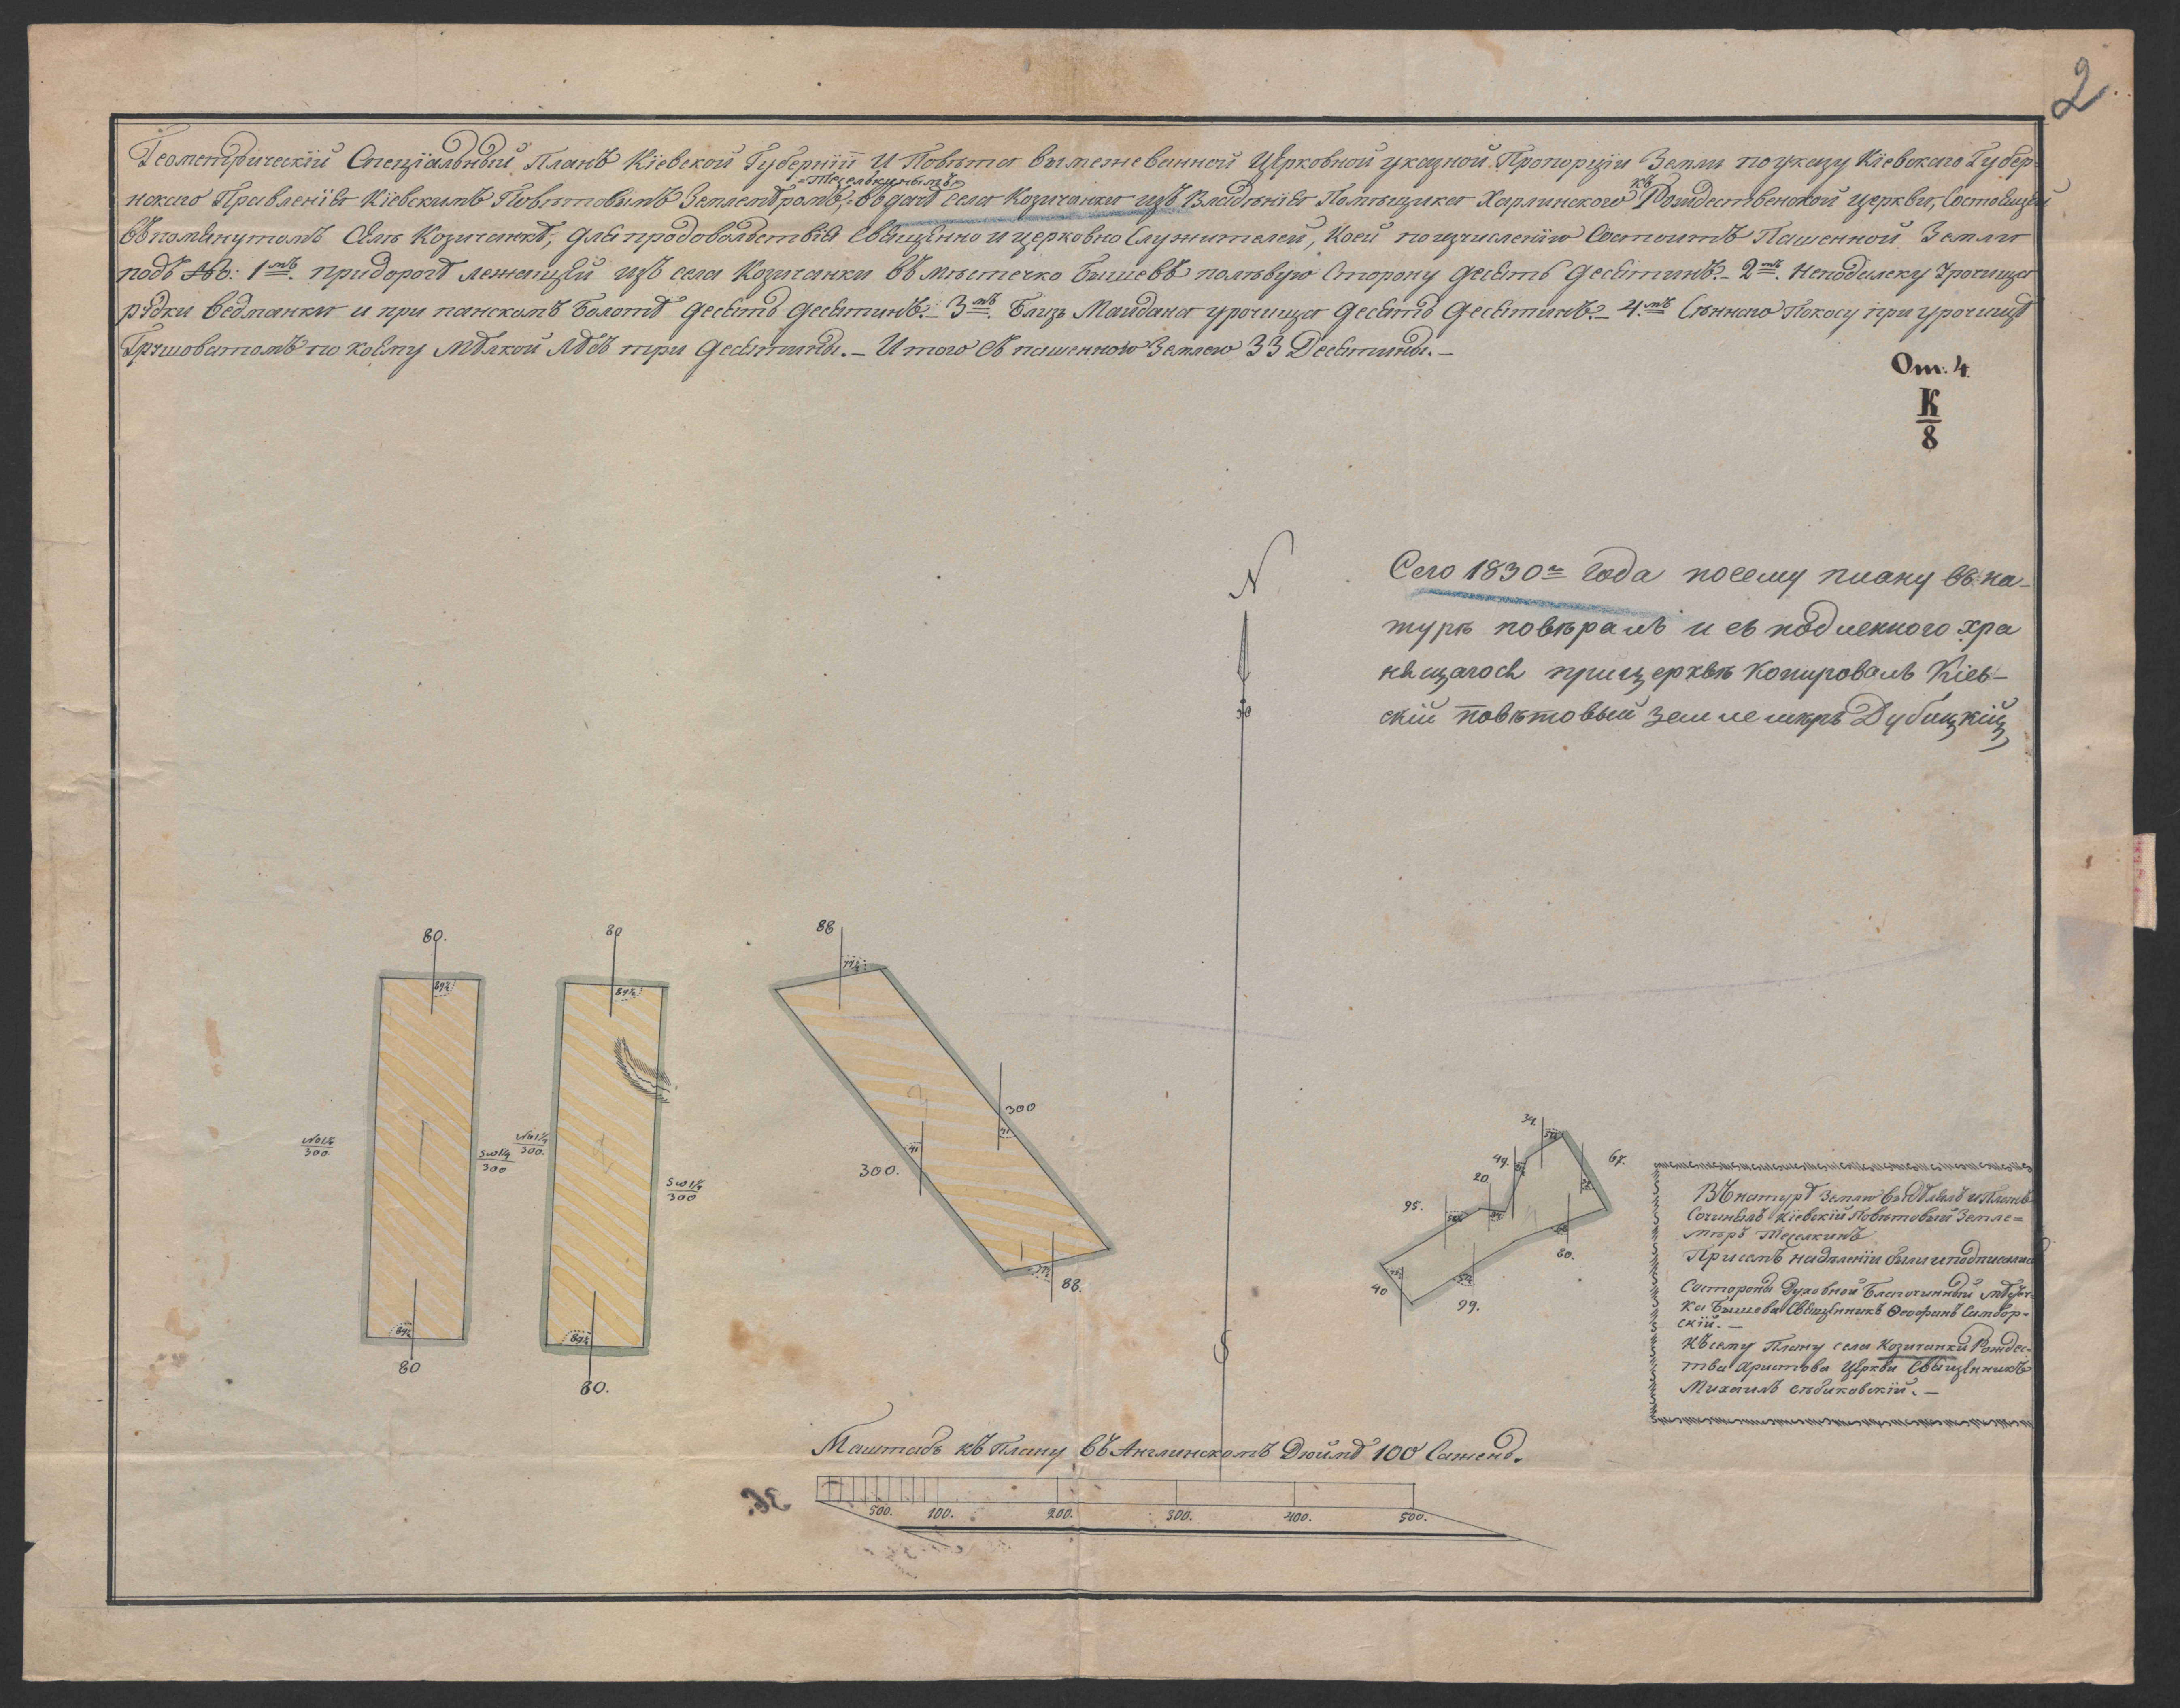 2.
Геометрическій Спеціальный Планъ Кіевской Губерніи И Повѣта вымежеванной Церковной указной Пропорціи Земли по указу Кіевскаго Губер-
нскаго Правленія Кіевскимъ Повѣтовымъ Землемѣромъ, въ дачѣ села Козичанки изъ Владѣнія Помѣщика Харлинского къ Рождественской церкви, Состоящей
въ помянутомъ Селѣ Козичанкѣ, для продовольствія Священно и церковно Служителей, Коей по изчисленію Состоитъ Пашенной Земли
подъ №: 1мъ. при дорогѣ лежащей изъ села Козичанки въ мѣстечко Бышевъ по лѣвую Сторону десять десятинъ. – 2мъ. Неподалеку Урочища
рѣдки ведманки и при панскомъ Болотѣ десять десятинъ. – 3мъ. Близь Майдана урочища десять десятинъ. – 4.мъ Сѣннаго Покосу при урочищѣ
по коему мѣлкой лѣсъ три десятины. – Итого съ пашенною Землею 33 Десятины. –
От. 4.
К
8
N
Сего 1830го Года посему плану въ на-
турѣ повѣралъ и съ подленного хра
нящагося прицерквѣ Копировалъ Кіев-
скій повѣтовый землемѣръ Дубицкій
80.
80
88
89¼
89¼
77¼
300
41
41
300.
NO1¼
300.
SW1¼
300
NO1¼
300.
SW1¼
300
1
2
3
89¼
89¼
77¼
80
80.
88.
34.
67.
49.
20.
95.
4
80.
40
99.
S
Въ натурѣ землю выдѣлялъ и Планъ
Сочинялъ Кіевскій Повѣтовый Земле=
мѣръ Теселкинъ
При семъ надѣленіи были и подписались
Состороны Духовной Благочинный мѣстеч-
ка Бышева Священникъ Ѳеофанъ Самбор-
скій. –
Къ сему Плану села Козичанки Рождес-
тва Христова Церкви Священникъ
Михаилъ
Маштабъ къ Плану въ Англинскомъ Дюймѣ 100 Сажень.
500. 100. 200. 300. 400. 500.